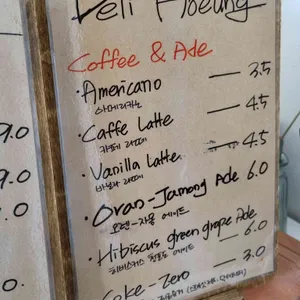 Deli Hoeung
Coffee & Ade
· Americano — 3.5
아메리카노
· Caffe Latte — 4.5
카페 라떼
· Vanilla Latte — 4.5
바닐라 라떼
· Oran-Jamong Ade 6.0
오렌-자몽 에이드
· Hibiscus green grape Ade
히비스커스 청포도 에이드 — 6.0
Coke-Zero — 3.0
9.0
9.0